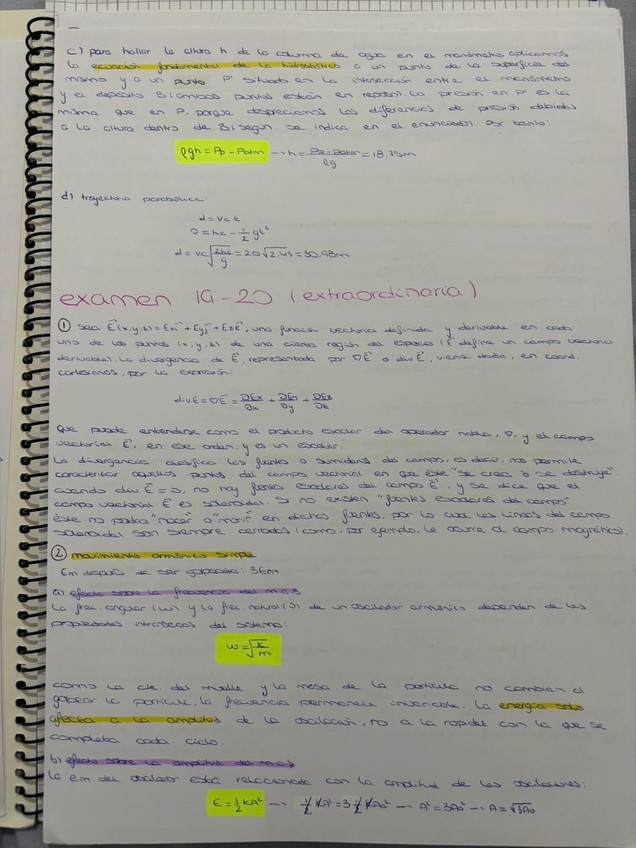 c) para hallar la altura h de la columna de agua en el manómetro aplicamos
la ecuación fundamental de la hidrostática a un punto de la superficie del
mismo y a un punto P' situado en la intersección entre el manómetro
y el depósito B (ambos puntos están en reposo). La presión en P' es la
misma que en P, porque despreciamos las diferencias de presión debidas
a la altura dentro de B (según se indica en el enunciado). Por tanto:
ρgh = Pp - Patm → h = (Pp - Patm)/ρg = 18.75m
d) trayectoria parabólica:
d = vc t
0 = hc - 1/2 gt²
d = vc √(2hc/g) = 20 √2.45 = 30.98m
examen 19-20 (extraordinaria)
① Sea E⃗(x,y,z) = Ex i⃗ + Ey j⃗ + Ez k⃗, una función vectorial definida y derivable en cada
uno de los puntos (x,y,z) de una cierta región del espacio (E⃗ define un campo vectorial
derivable). La divergencia de E⃗, representada por ∇E⃗ o div E⃗, viene dada, en coord.
cartesianas, por la expresión:
div E = ∇E⃗ = ∂Ex/∂x + ∂Ey/∂y + ∂Ez/∂z
Que puede entenderse como el producto escalar del operador nabla, ∇, y el campo
vectorial E⃗, en ese orden, y es un escalar.
La divergencia clasifica las fuentes o sumideros del campo, es decir, nos permite
caracterizar aquellos puntos del campo vectorial en que éste "se crea" o "se destruye".
cuando div E⃗ = 0, no hay fuentes escalares del campo E⃗, y se dice que el
campo vectorial E⃗ es solenoidal. Si no existen "fuentes escalares de campo"
éste no podrá "nacer" o "morir" en dichas fuentes, por lo cual las líneas del campo
solenoidal son siempre cerradas (como, por ejemplo, le ocurre al campo magnético).
② movimiento armónico simple
Em después de ser golpeada: 3Em
a) efecto sobre la frecuencia del m.a.s
La frec. angular (ω) y la frec natural (ν) de un oscilador armónico dependen de las
propiedades intrínsecas del sistema:
ω = √(k/m)
como la cte. del muelle y la masa de la partícula no cambian al
golpear la partícula, la frecuencia permanece invariable. La energía solo
afecta a la amplitud de la oscilación, no a la rapidez con la que se
completa cada ciclo.
b) efecto sobre la amplitud del m.a.s
la Em del oscilador está relacionada con la amplitud de las oscilaciones:
E = 1/2 KA² → 1/2 KA² = 3 1/2 KA₀² → A² = 3A₀² → A = √3A₀